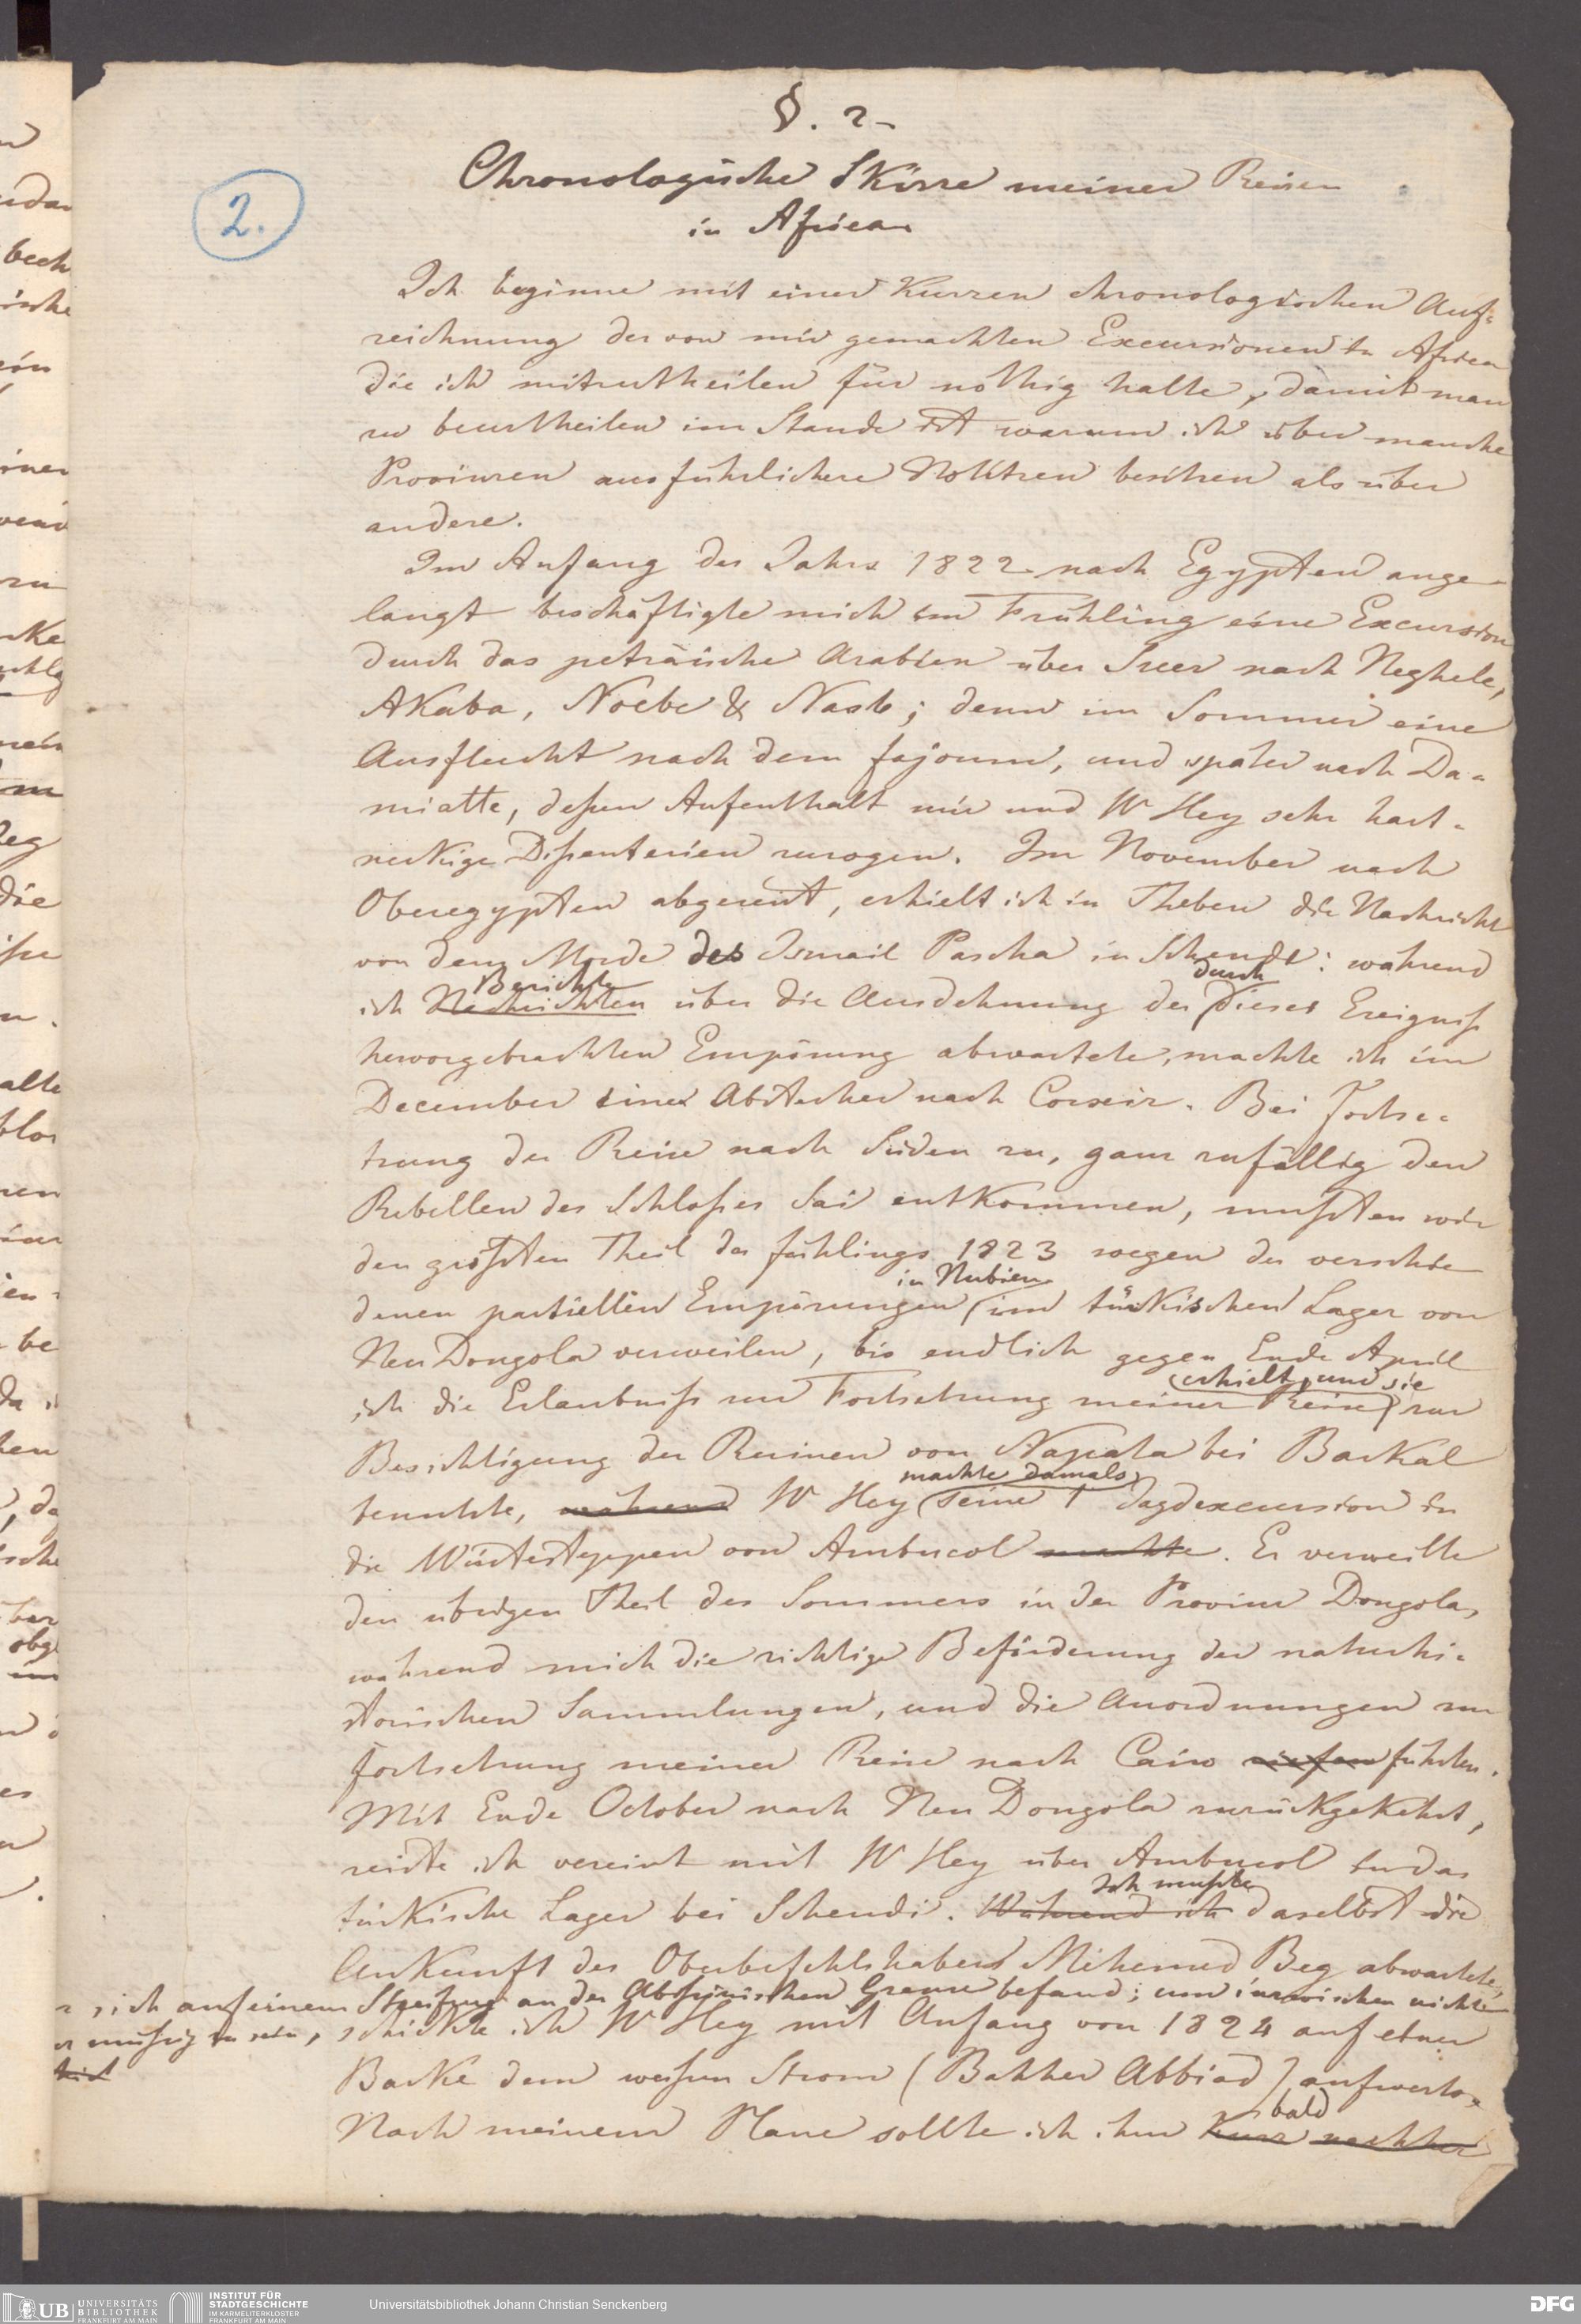 §. 2.
2.
Chronologische Skizze meiner Reisen
in Africa.
Ich beginne mit einer kurzen chronologischen Auf-
zeichnung der von mir gemachten Excursionen in Africa
die ich mitzutheilen für nöthig halte, damit man
zu beurtheilen im Stande ist warum ich über manche
Provinzen ausführlichere Notitzen besitzen als über
andere.
Im Anfang des Jahrs 1822 nach Egypten ange-
langt beschäftigte mich im Frühling eine Excursion
durch das peträische Arabien über Suez nach Neghele,
Akaba, Noebe & Nasb; denn im Sommer eine
Ausflucht nach dem fajoum, und später nach Da-
miatte, deßen Aufenthalt mir und W Hey sehr hart-
neckige Dißenterien zuzogen. Im November nach
Oberegypten abgereist, erhielt ich in Theben die Nachricht
von dem Morde des Ismail Pascha in Schendi: während
Berichte durch
ich Nachrichten über die Ausdehnung der dieses Ereigniß
hervorgebrachten Empörung abwartete, machte ich im
December einen Abstecher nach Cosseir. Bei Fortse-
tzung der Reise nach Süden zu, ganz zufällig den
Rebellen des Schloßes Sai entkommen, mußten wir
den größten Theil des frühlings 1823 wegen der verschie
in Nubien
denen partiellen Empörungen im türkischen Lager von
Neu Dongola verweilen, bis endlich gegen Ende April
erhielt, und sie
ich die Erlaubniß zur Fortsetzung meiner Reise zur
Besichtigung der Ruinen von Napata bei Barkal
machte damals
benutzte, während W Hey seine 1 Jagdexcursion in
die Wüstesteppen von Ambucol machte. Er verweilte
den übrigen Theil des Sommers in der Provinz Dongola,
während mich die richtige Beförderung der naturhi-
storischen Sammlungen, und die Anordnungen zur
fortsetzung meiner Reise nach Cairo riefen führten.
Mit Ende October nach Neu Dongola zurückgekehrt,
reiste ich vereint mit W Hey über Ambucol in das
Ich mußte
türkische Lager bei Schendi. Während ich daselbst die
Ankunft des Oberbefehlshabers Mihemed Beg abwarten,
sich auf einem Streifzug an der Abyßinischen Grenze befand; um inzwischen nicht
müßig zu sein, schickte ich W Hey mit Anfang von 1824 auf einer
Barke dem weißen Strom (Bahher Abbiad) aufwerts.
bald
Nach meinem Plane sollte ich ihm kurz nachher
UB UNIVERSITÄTS
BIBLIOTHEK
FRANKFURT AM MAIN
INSTITUT FÜR
STADTGESCHICHTE
IM KARMELITERKLOSTER
FRANKFURT AM MAIN
Universitätsbibliothek Johann Christian Senckenberg
DFG